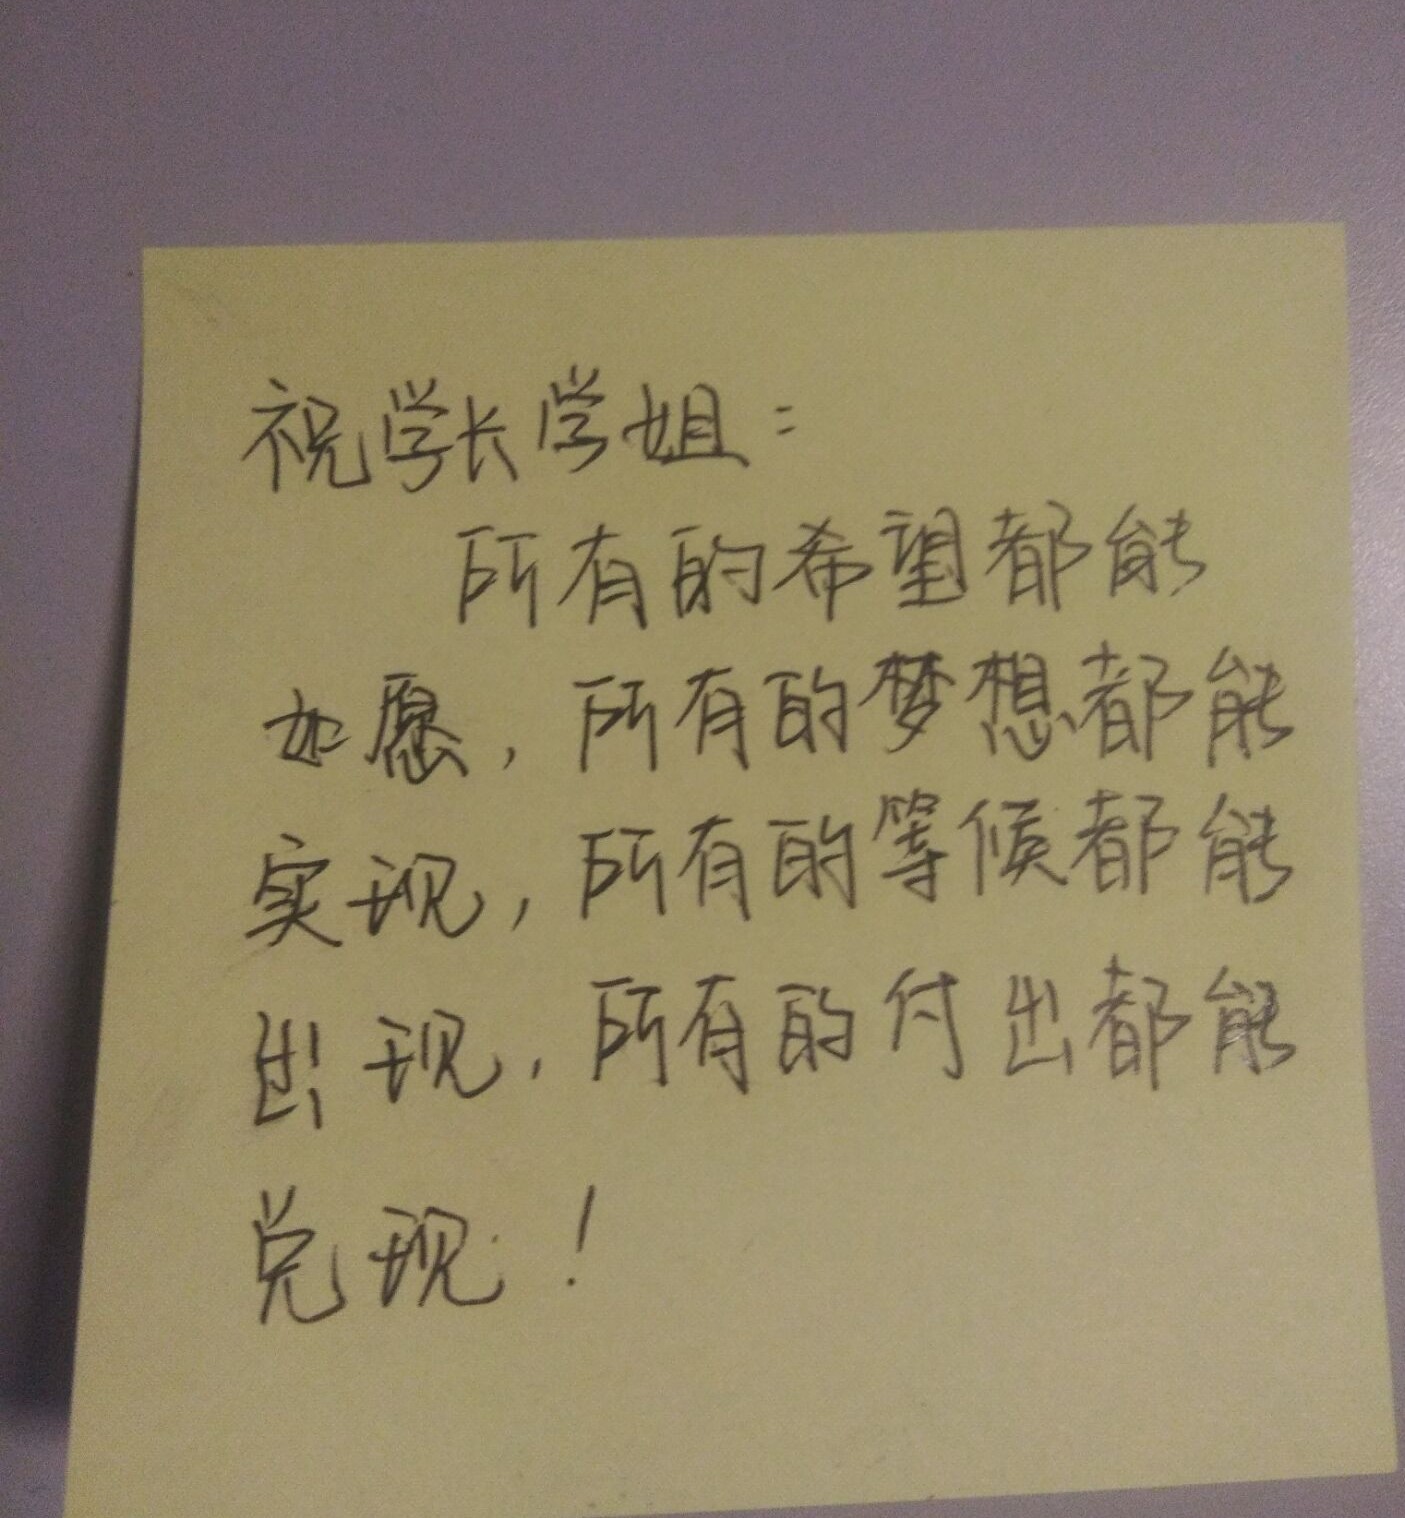 祝学长学姐:
所有的希望都能
如愿,所有的梦想都能
实现,所有的等候都能
出现,所有的付出都能
兑现!